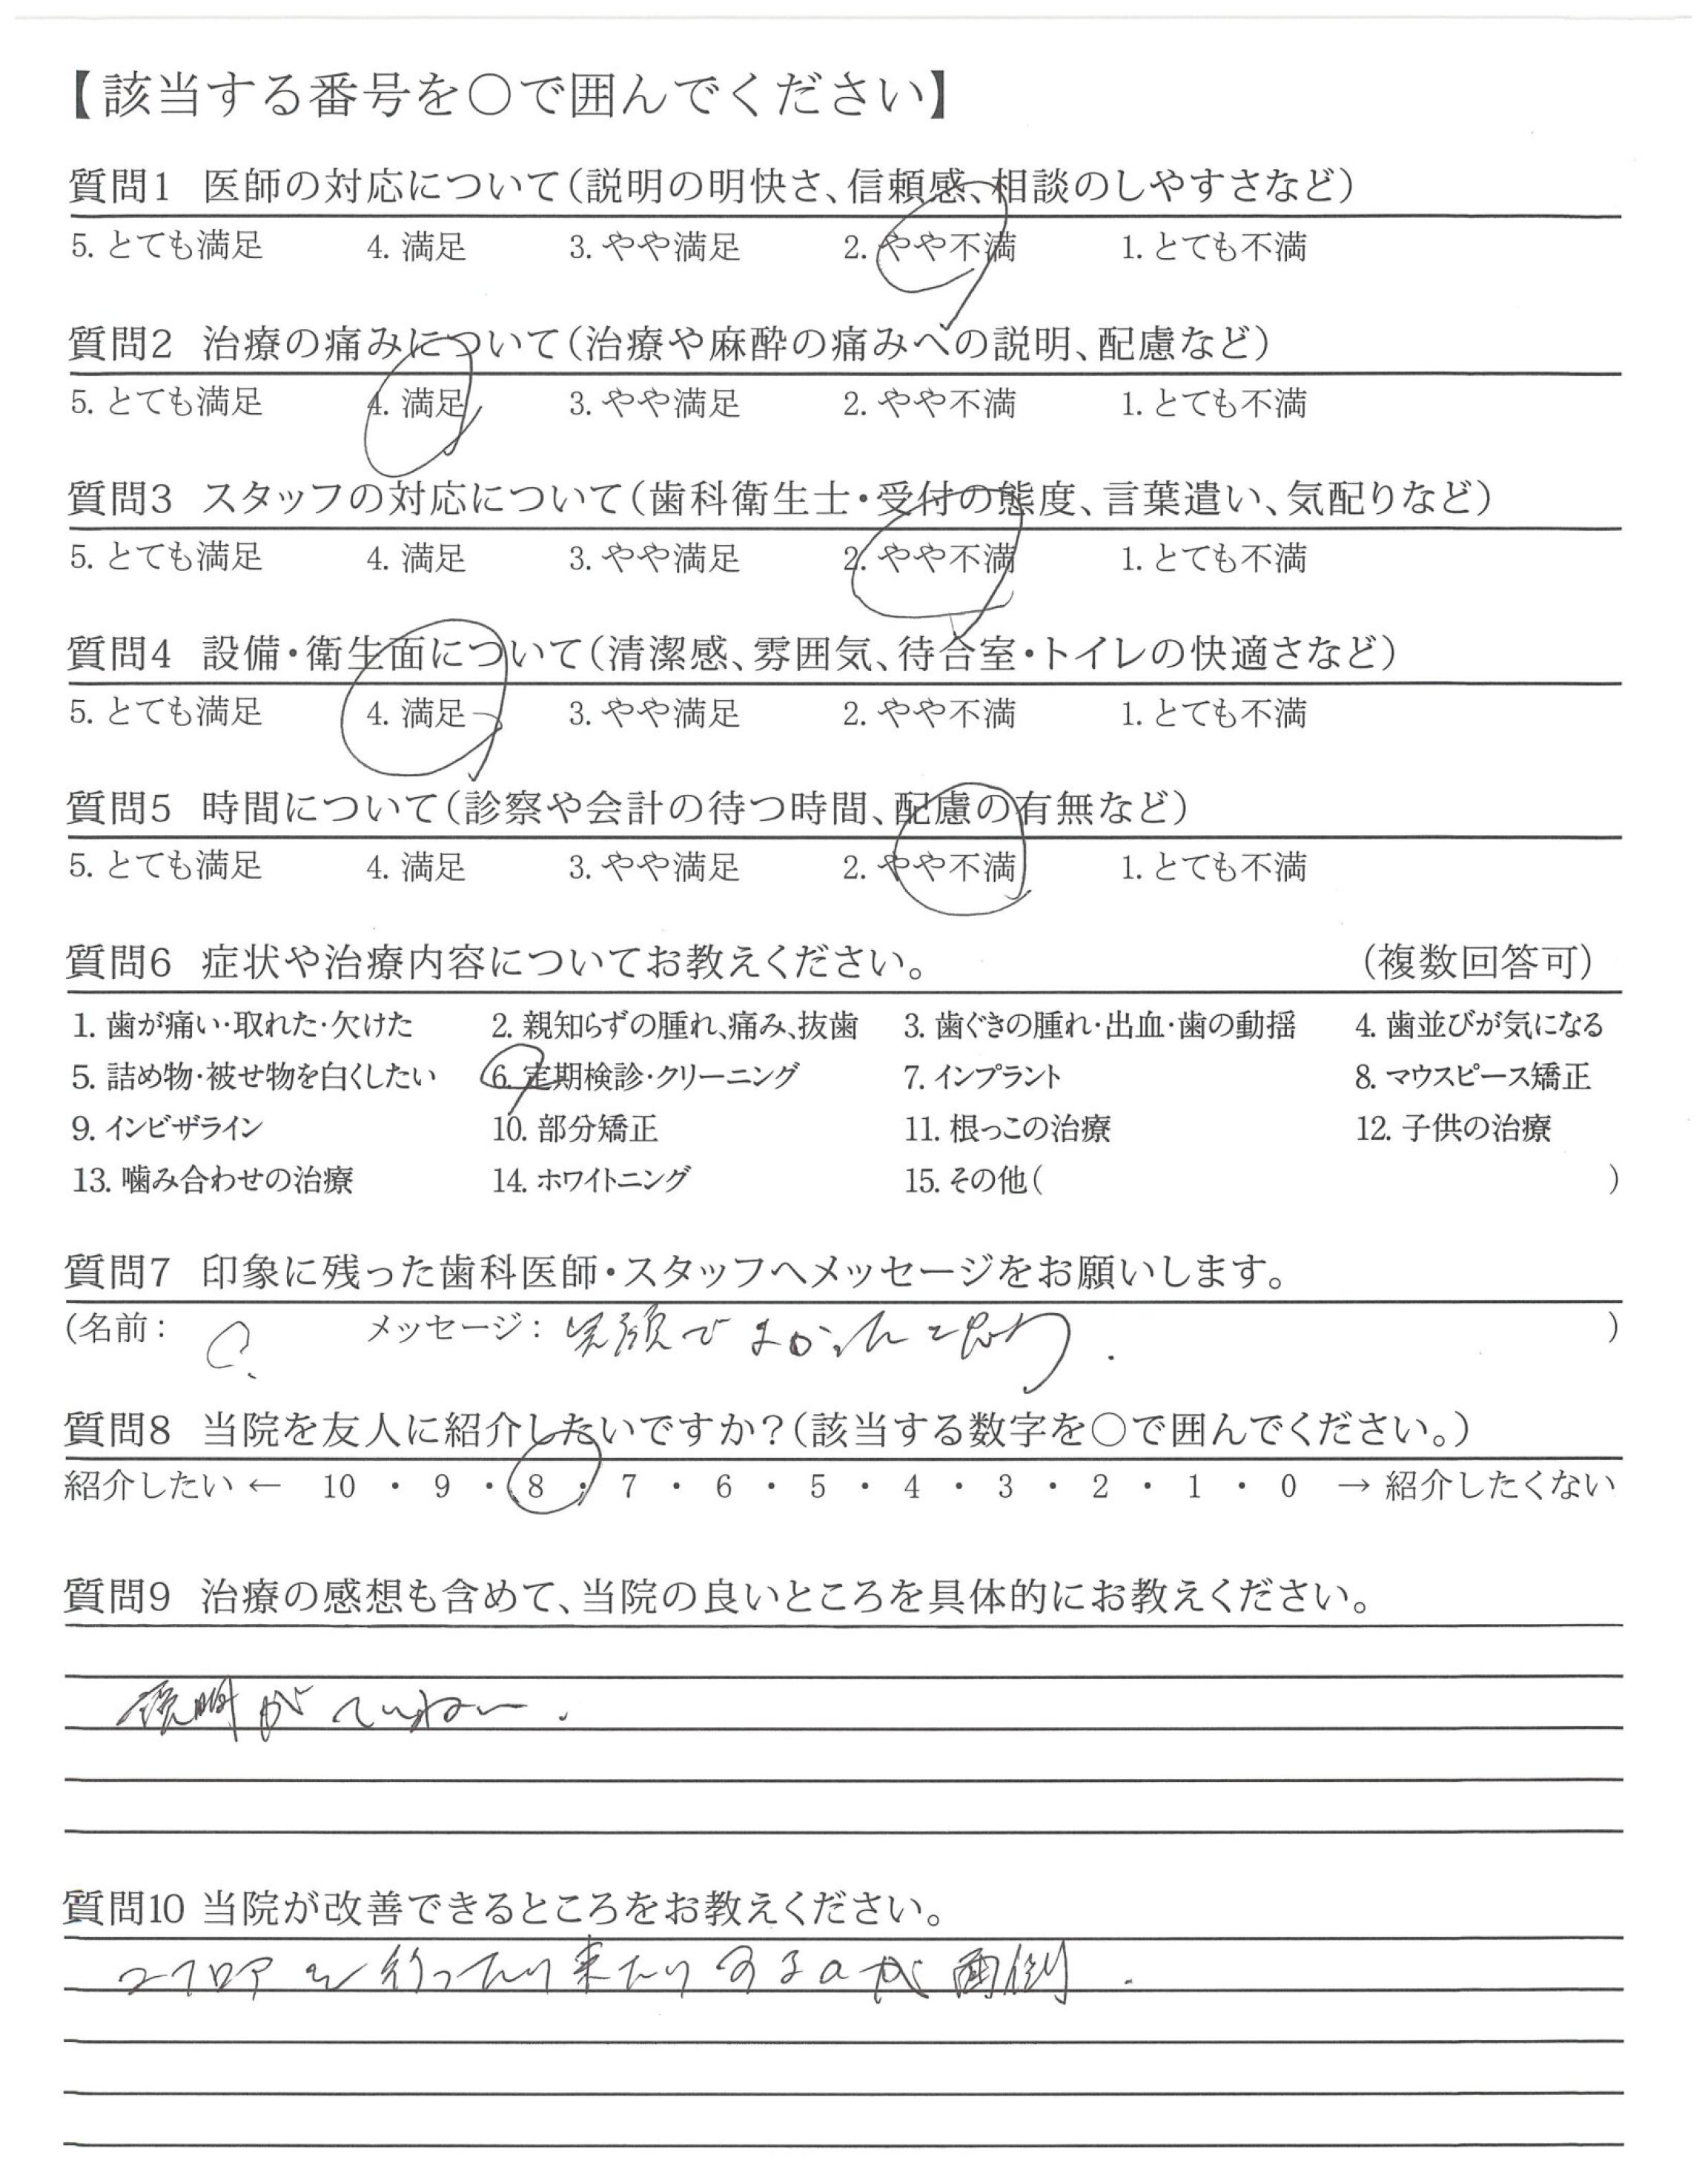 【該当する番号を○で囲んでください】
質問1 医師の対応について（説明の明快さ、信頼感、相談のしやすさなど）
5. とても満足 4. 満足 3. やや満足 2. やや不満 1. とても不満
質問2 治療の痛みについて（治療や麻酔の痛みへの説明、配慮など）
5. とても満足 4. 満足 3. やや満足 2. やや不満 1. とても不満
質問3 スタッフの対応について（歯科衛生士・受付の態度、言葉遣い、気配りなど）
5. とても満足 4. 満足 3. やや満足 2. やや不満 1. とても不満
質問4 設備・衛生面について（清潔感、雰囲気、待合室・トイレの快適さなど）
5. とても満足 4. 満足 3. やや満足 2. やや不満 1. とても不満
質問5 時間について（診察や会計の待つ時間、配慮の有無など）
5. とても満足 4. 満足 3. やや満足 2. やや不満 1. とても不満
質問6 症状や治療内容についてお教えください。 （複数回答可）
1. 歯が痛い・取れた・欠けた 2. 親知らずの腫れ、痛み、抜歯 3. 歯ぐきの腫れ・出血・歯の動揺 4. 歯並びが気になる
5. 詰め物・被せ物を白くしたい 6. 定期検診・クリーニング 7. インプラント 8. マウスピース矯正
9. インビザライン 10. 部分矯正 11. 根っこの治療 12. 子供の治療
13. 噛み合わせの治療 14. ホワイトニング 15. その他（ ）
質問7 印象に残った歯科医師・スタッフへメッセージをお願いします。
（名前： ? メッセージ： 笑顔で と思う. ）
質問8 当院を友人に紹介したいですか？（該当する数字を○で囲んでください。）
紹介したい ← 10 ・ 9 ・ 8 ・ 7 ・ 6 ・ 5 ・ 4 ・ 3 ・ 2 ・ 1 ・ 0 → 紹介したくない
質問9 治療の感想も含めて、当院の良いところを具体的にお教えください。
説明がていねい.
質問10 当院が改善できるところをお教えください。
2フロアを行ったり来たりするのが面倒.